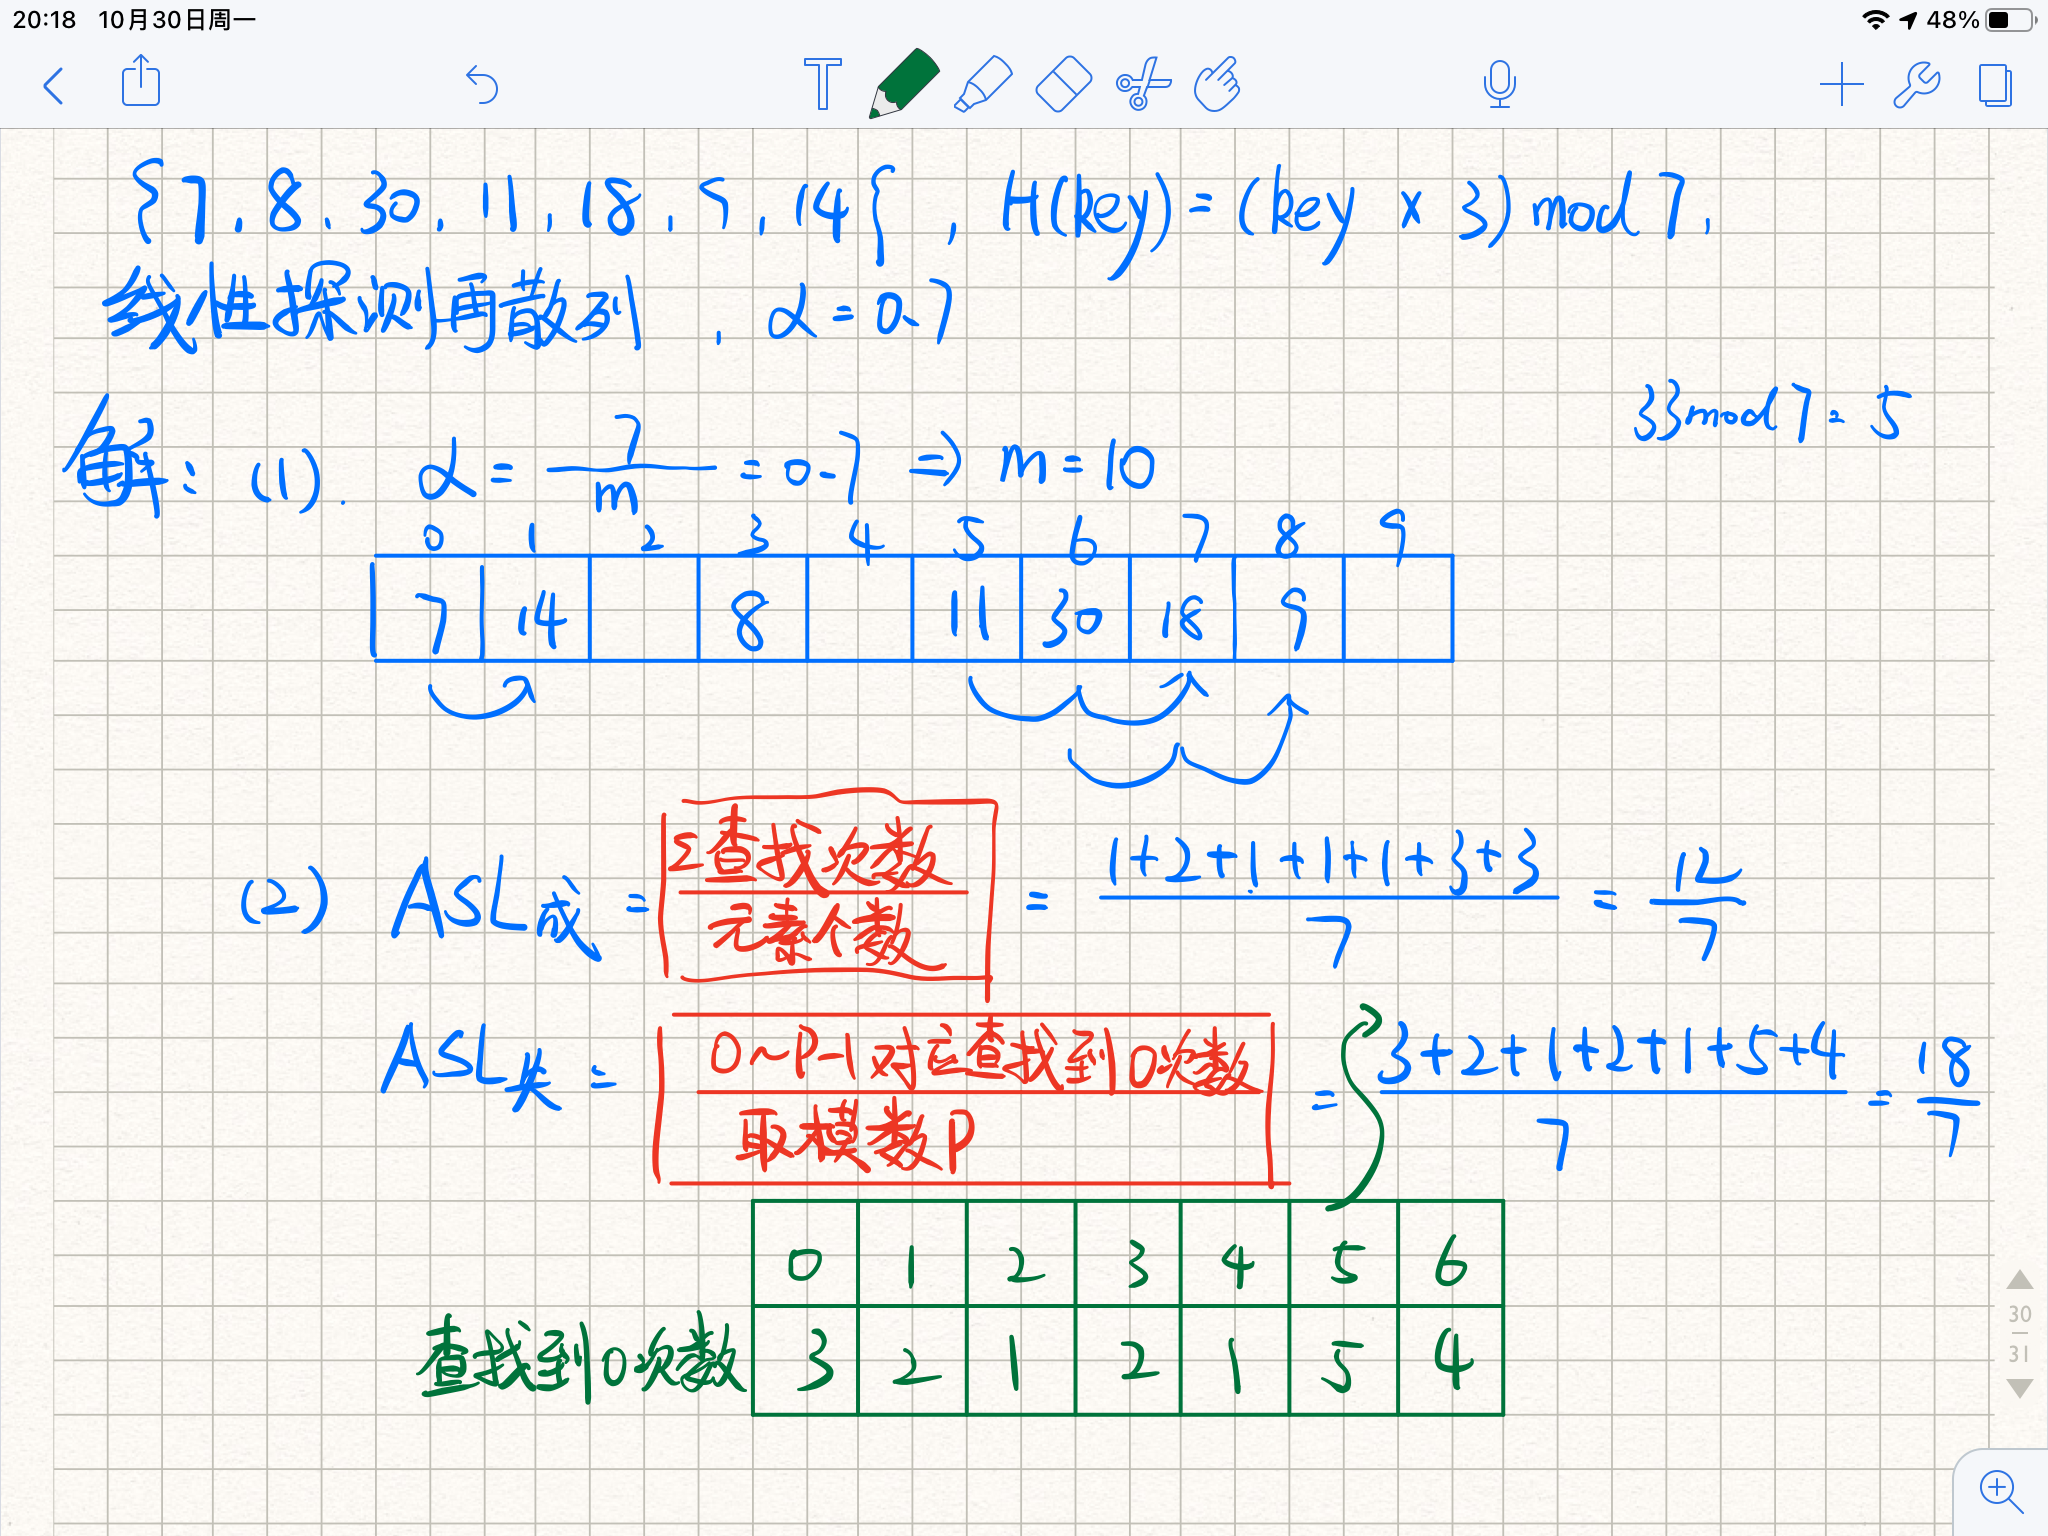 20:18 10月30日周一
48%
T
{7, 8, 30, 11, 18, 9, 14}, H(key) = (key × 3) mod 7,
线性探测再散列, α = 0.7
33 mod 7 = 5
解: (1). α = 7/m = 0.7 ⇒ m = 10
0 1 2 3 4 5 6 7 8 9
7 14 8 11 30 18 9
(2) ASL成 = Σ查找次数/元素个数 = (1+2+1+1+1+3+3)/7 = 12/7
ASL失 = 0~P-1对应查找到0次数/取模数P = (3+2+1+2+1+5+4)/7 = 18/7
0 1 2 3 4 5 6
查找到0次数 3 2 1 2 1 5 4
30
31